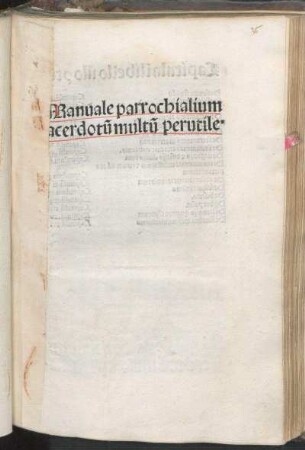 Manuale parrochialium
acerdotū multū perutile·